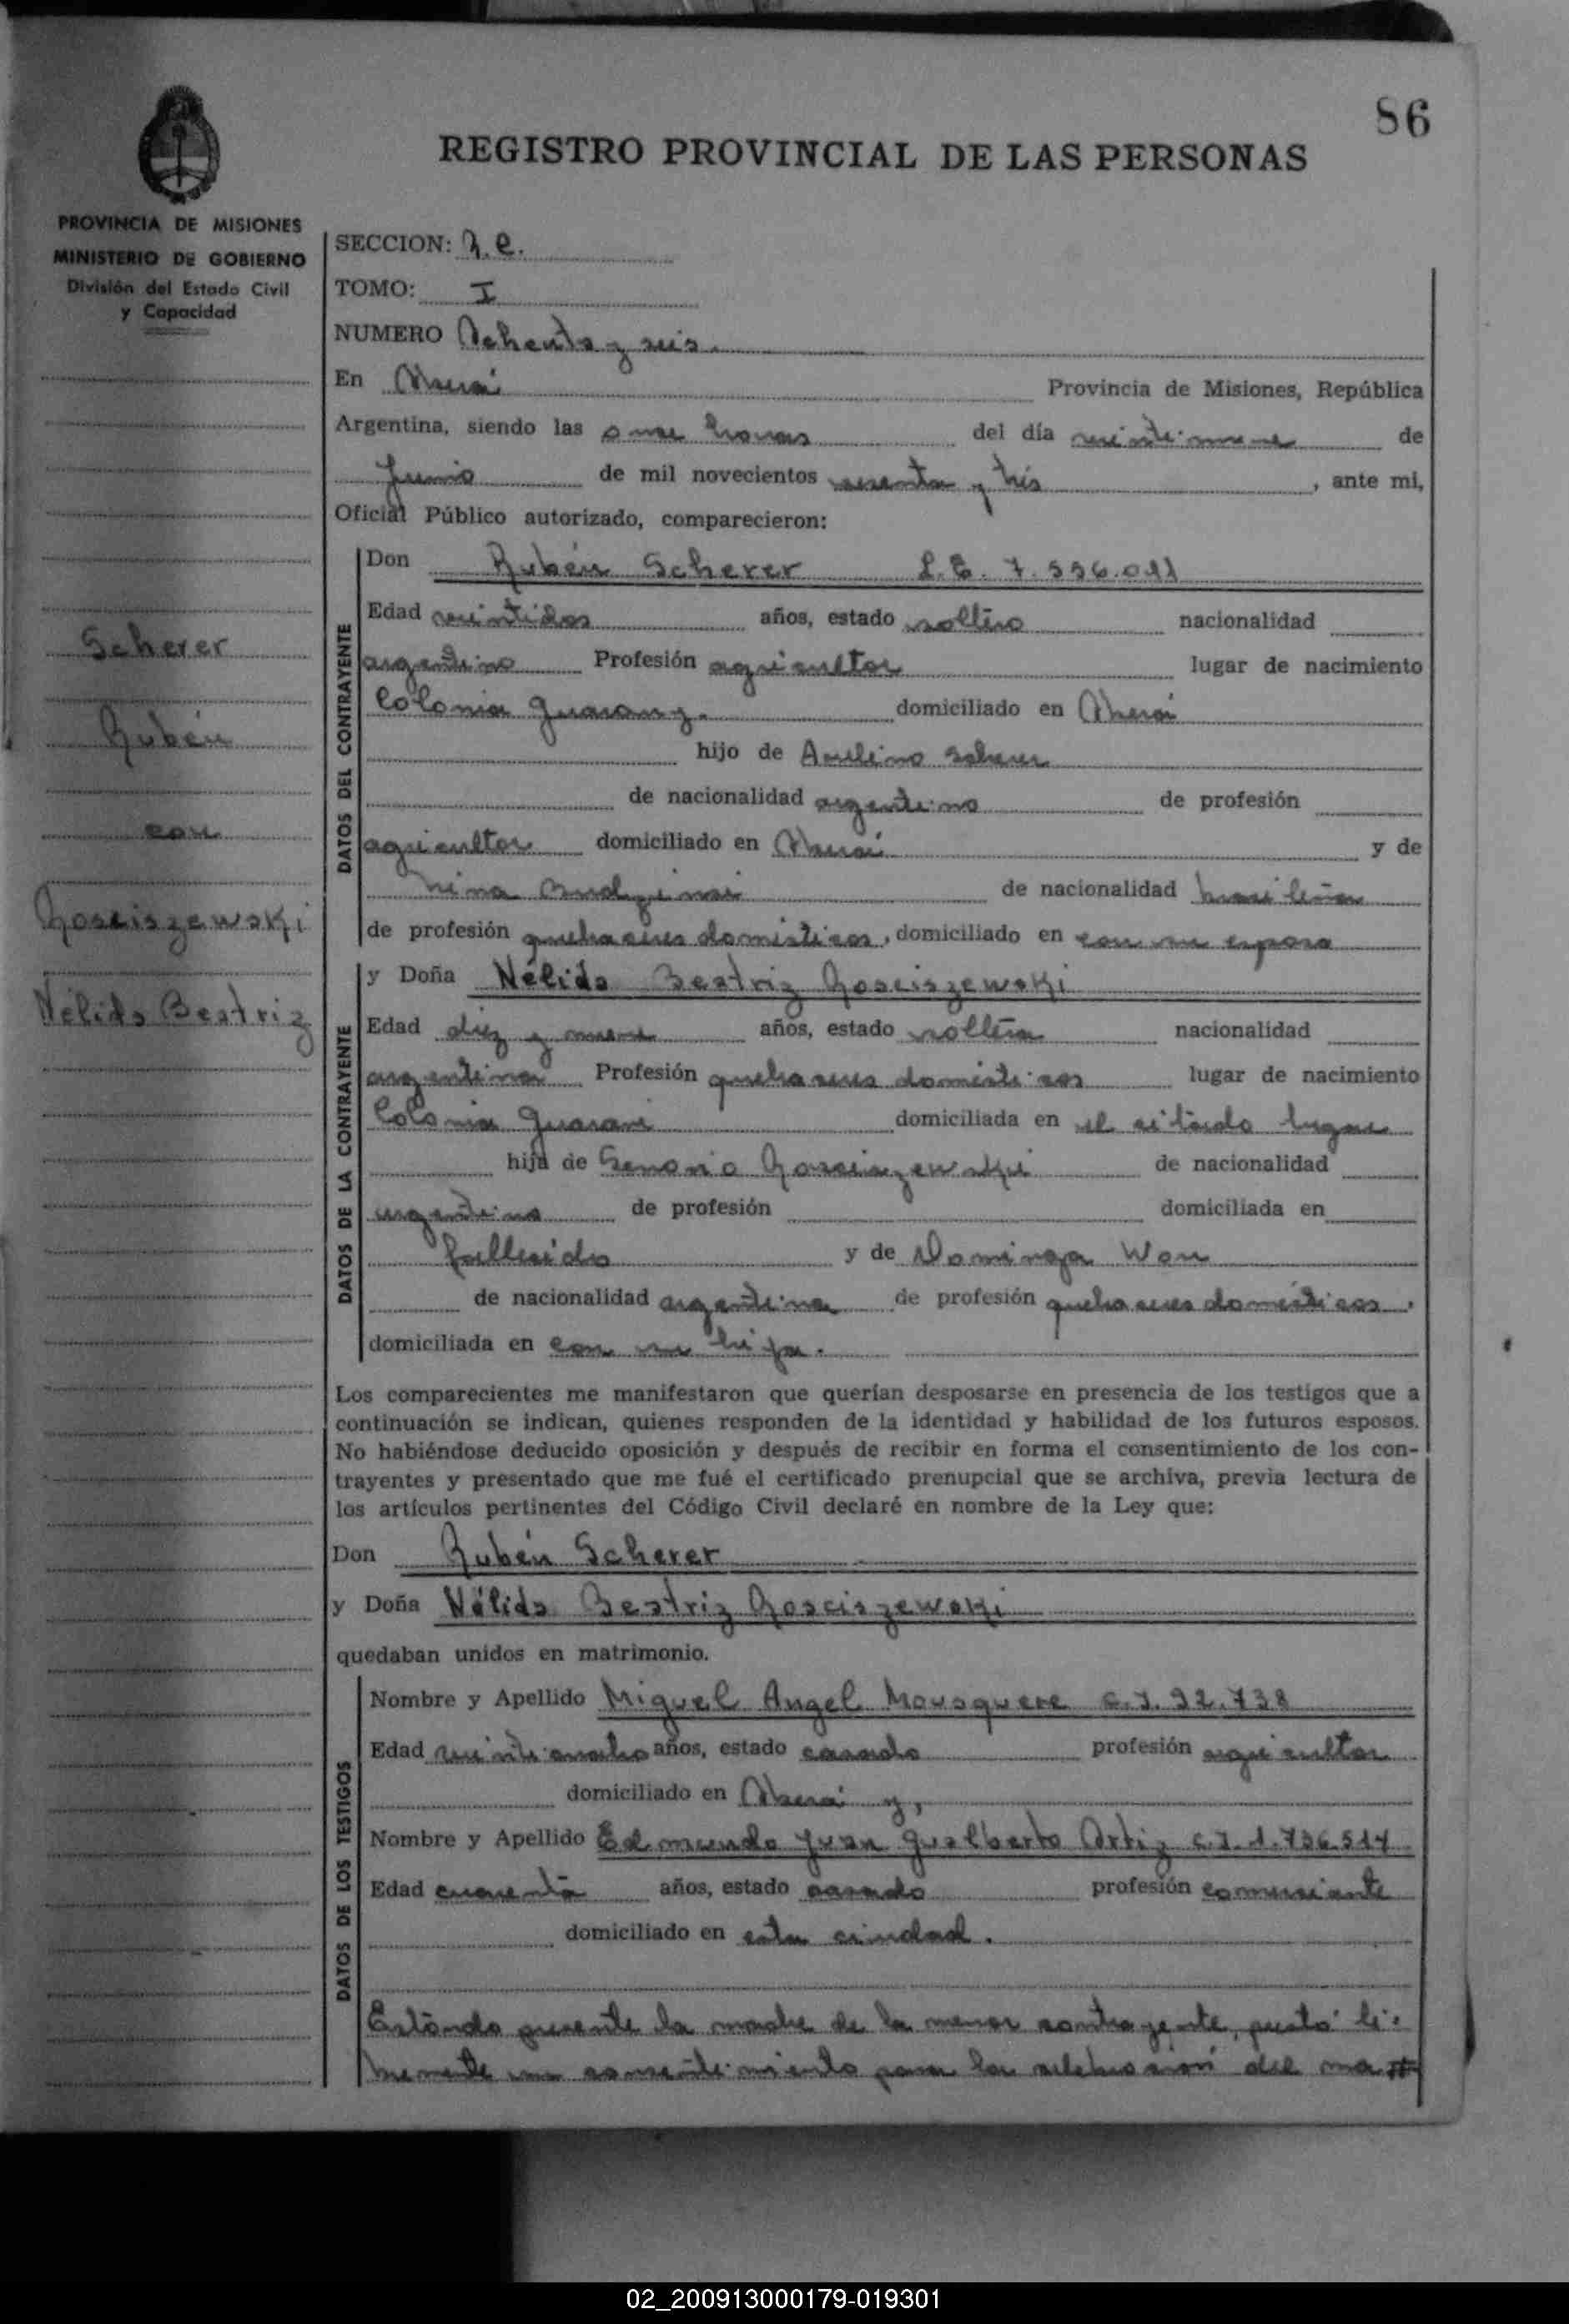 86
REGISTRO PROVINCIAL DE LAS PERSONAS
PROVINCIA DE MISIONES
MINISTERIO DE GOBIERNO
División del Estado Civil
y Capacidad
Scherer
Rubén
con
Gosciszewski
Nélida Beatriz
SECCION:
TOMO: I
NUMERO Ochenta y seis.
En Oberá Provincia de Misiones, República
Argentina, siendo las once horas del día veintinueve de
Junio de mil novecientos sesenta y trés, ante mi,
Oficial Público autorizado, comparecieron:
DATOS DEL CONTRAYENTE
Don Rubén Scherer L.E. 7.556.011
Edad veintidos años, estado soltero nacionalidad
argentino Profesión agricultor lugar de nacimiento
Colonia Guarany. domiciliado en Oberá
hijo de Avelino Scherer
de nacionalidad argentino de profesión
agricultor domiciliado en Oberá y de
Nina de nacionalidad brasileña
de profesión quehaceres domésticos, domiciliado en con su esposo
DATOS DE LA CONTRAYENTE
y Doña Nélida Beatriz Gosciszewski
Edad diez y nueve años, estado soltera nacionalidad
argentina Profesión quehaceres domésticos lugar de nacimiento
Colonia Guaraní domiciliada en el citado lugar
hija de Genorio Gosciszewski de nacionalidad
argentino de profesión domiciliada en
fallecido y de Dominga Won
de nacionalidad argentina de profesión quehaceres domésticos.
domiciliada en con su hija.
Los comparecientes me manifestaron que querían desposarse en presencia de los testigos que a
continuación se indican, quienes responden de la identidad y habilidad de los futuros esposos.
No habiéndose deducido oposición y después de recibir en forma el consentimiento de los con-
trayentes y presentado que me fué el certificado prenupcial que se archiva, previa lectura de
los artículos pertinentes del Código Civil declaré en nombre de la Ley que:
Don Rubén Scherer
y Doña Nélida Beatriz Gosciszewski
quedaban unidos en matrimonio.
DATOS DE LOS TESTIGOS
Nombre y Apellido Miguel Angel Mousquere C.I. 92.738
Edad veintiocho años, estado casado profesión agricultor
domiciliado en Oberá y,
Nombre y Apellido Edmundo Juan Gualberto Ortiz C.I. 1.736.514
Edad cuarenta años, estado casado profesión comerciante
domiciliado en esta ciudad.
Estando presente la madre de la menor contrayente, prestó li-
bremente su consentimiento para la celebración del ma
02_200913000179-019301